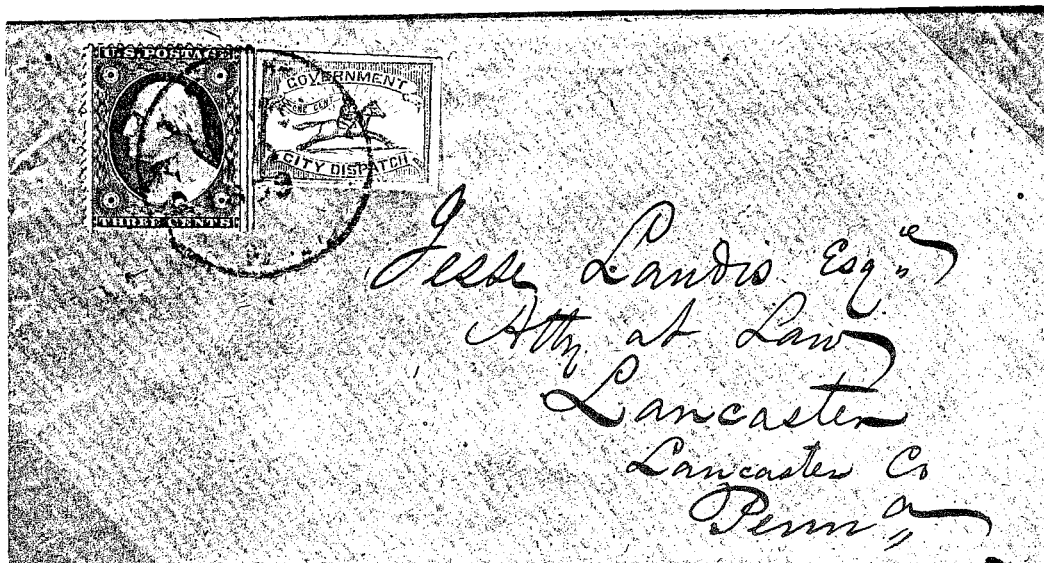 U.S. POSTAGE
THREE CENTS
GOVERNMENT
ONE CENT
CITY DISPATCH
Jesse Landis Esqr
Atty at Law
Lancaster
Lancaster Co
Penna